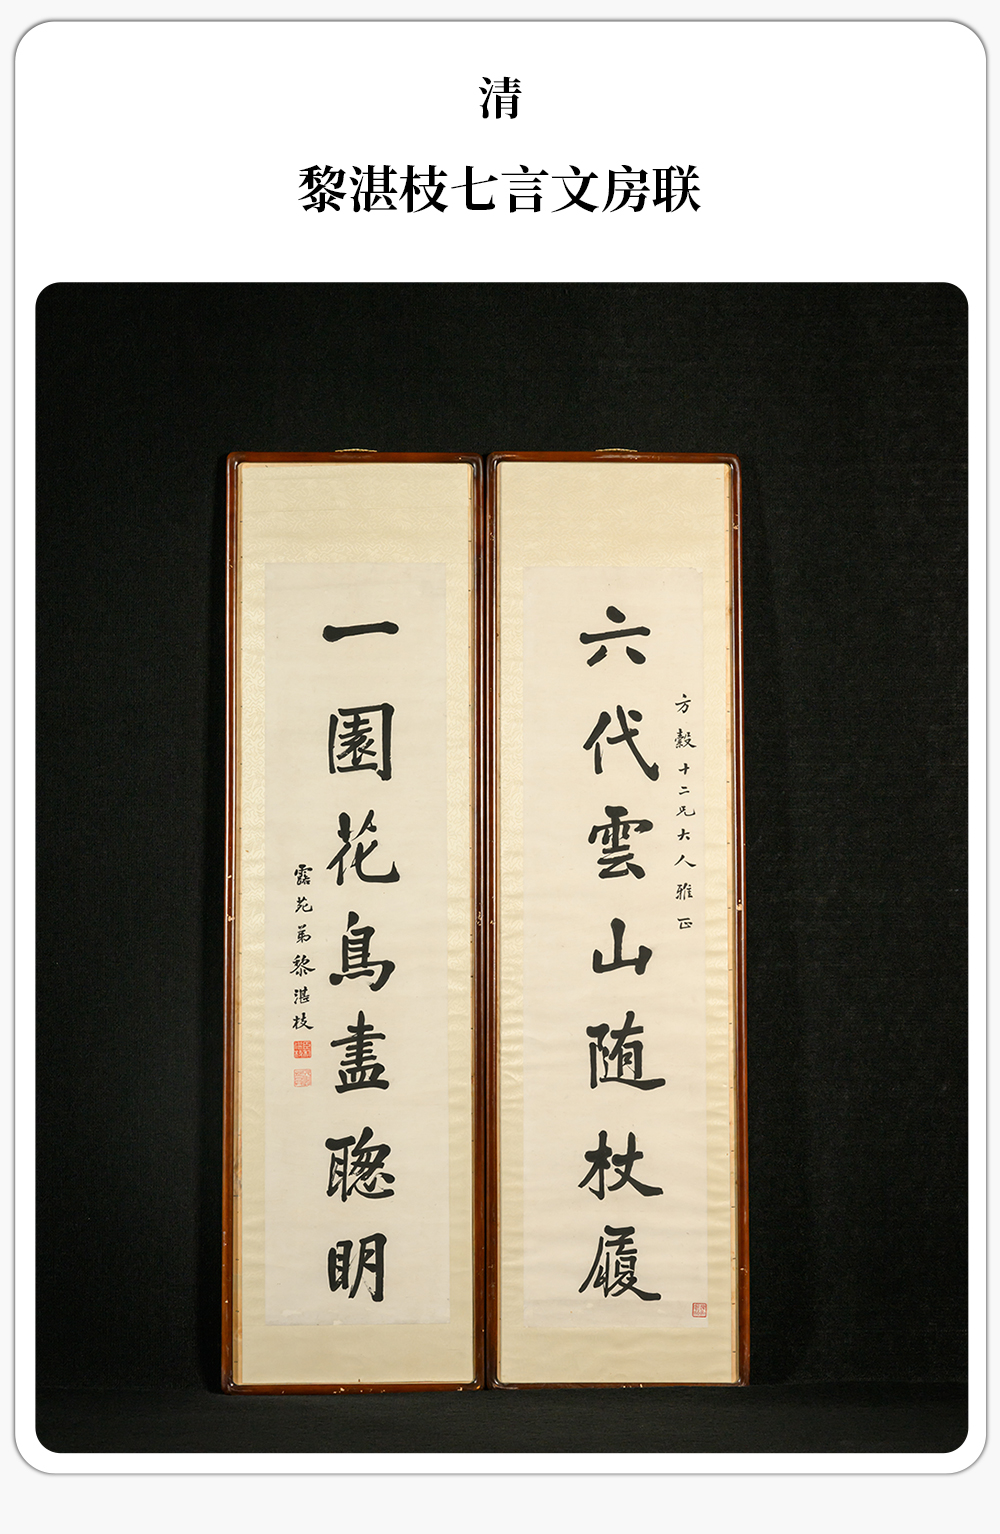 清
黎湛枝七言文房联
方穀十二兄大人雅正
六代雲山随杖履
一園花鳥盡聰明
露苑弟黎湛枝